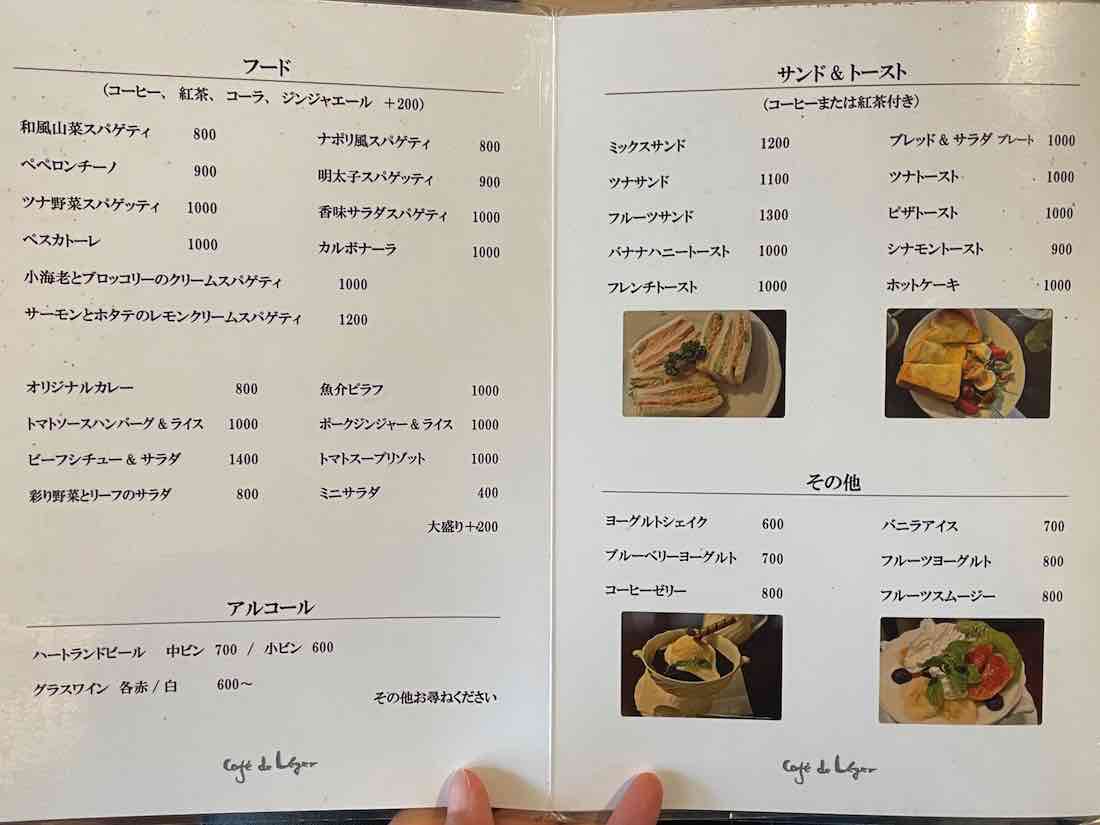 フード
(コーヒー、紅茶、コーラ、ジンジャエール +200)
和風山菜スパゲティ 800
ペペロンチーノ 900
ツナ野菜スパゲッティ 1000
ペスカトーレ 1000
ナポリ風スパゲティ 800
明太子スパゲッティ 900
香味サラダスパゲティ 1000
カルボナーラ 1000
小海老とブロッコリーのクリームスパゲティ 1000
サーモンとホタテのレモンクリームスパゲティ 1200
オリジナルカレー 800
トマトソースハンバーグ&ライス 1000
ビーフシチュー&サラダ 1400
彩り野菜とリーフのサラダ 800
魚介ピラフ 1000
ポークジンジャー&ライス 1000
トマトスープリゾット 1000
ミニサラダ 400
大盛り+200
アルコール
ハートランドビール 中ビン 700 / 小ビン 600
グラスワイン 各赤/白 600〜
その他お尋ねください
Café de Léger
サンド&トースト
(コーヒーまたは紅茶付き)
ミックスサンド 1200
ツナサンド 1100
フルーツサンド 1300
バナナハニートースト 1000
フレンチトースト 1000
ブレッド&サラダ プレート 1000
ツナトースト 1000
ピザトースト 1000
シナモントースト 900
ホットケーキ 1000
その他
ヨーグルトシェイク 600
ブルーベリーヨーグルト 700
コーヒーゼリー 800
バニラアイス 700
フルーツヨーグルト 800
フルーツスムージー 800
Café de Léger